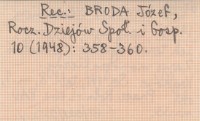 Rec.: BRODA Józef,
Rocz. Dziejów Społ. i Gosp.
10 (1948): 358-360.